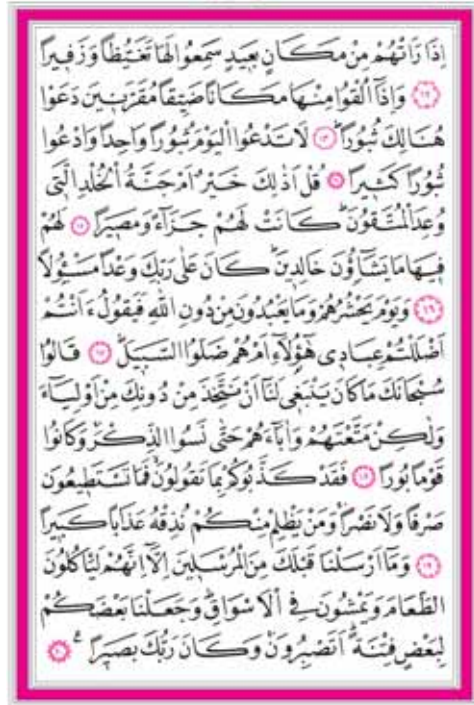 اِذَا رَاَتْهُمْ مِنْ مَكَانٍ بَعٖيدٍ سَمِعُوا لَهَا تَغَيُّظًا وَزَفٖيرًا
﴿١٢﴾ وَاِذَٓا اُلْقُوا مِنْهَا مَكَانًا ضَيِّقًا مُقَرَّنٖينَ دَعَوْا
هُنَالِكَ ثُبُورًا ﴿١٣﴾ لَا تَدْعُوا الْيَوْمَ ثُبُورًا وَاحِدًا وَادْعُوا
ثُبُورًا كَثٖيرًا ﴿١٤﴾ قُلْ اَذٰلِكَ خَيْرٌ اَمْ جَنَّةُ الْخُلْدِ الَّتٖى
وُعِدَ الْمُتَّقُونَؕ كَانَتْ لَهُمْ جَزَٓاءً وَمَصٖيرًا ﴿١٥﴾ لَهُمْ
فٖيهَا مَا يَشَٓاؤُنَ خَالِدٖينَؕ كَانَ عَلٰى رَبِّكَ وَعْدًا مَسْؤُلًا
﴿١٦﴾ وَيَوْمَ يَحْشُرُهُمْ وَمَا يَعْبُدُونَ مِنْ دُونِ اللّٰهِ فَيَقُولُ ءَاَنْتُمْ
اَضْلَلْتُمْ عِبَادٖى هٰٓؤُ۬لَٓاءِ اَمْ هُمْ ضَلُّوا السَّبٖيلَؕ ﴿١٧﴾ قَالُوا
سُبْحَانَكَ مَا كَانَ يَنْبَغٖى لَنَٓا اَنْ نَتَّخِذَ مِنْ دُونِكَ مِنْ اَوْلِيَٓاءَ
وَلٰكِنْ مَتَّعْتَهُمْ وَاٰبَٓاءَهُمْ حَتّٰى نَسُوا الذِّكْرَۚ وَكَانُوا
قَوْمًا بُورًا ﴿١٨﴾ فَقَدْ كَذَّبُوكُمْ بِمَا تَقُولُونَۙ فَمَا تَسْتَطٖيعُونَ
صَرْفًا وَلَا نَصْرًاۚ وَمَنْ يَظْلِمْ مِنْكُمْ نُذِقْهُ عَذَابًا كَبٖيرًا
﴿١٩﴾ وَمَٓا اَرْسَلْنَا قَبْلَكَ مِنَ الْمُرْسَلٖينَ اِلَّٓا اِنَّهُمْ لَيَاْكُلُونَ
الطَّعَامَ وَيَمْشُونَ فِى الْاَسْوَاقِؕ وَجَعَلْنَا بَعْضَكُمْ
لِبَعْضٍ فِتْنَةًؕ اَتَصْبِرُونَۚ وَكَانَ رَبُّكَ بَصٖيرًا ﴿٢٠﴾